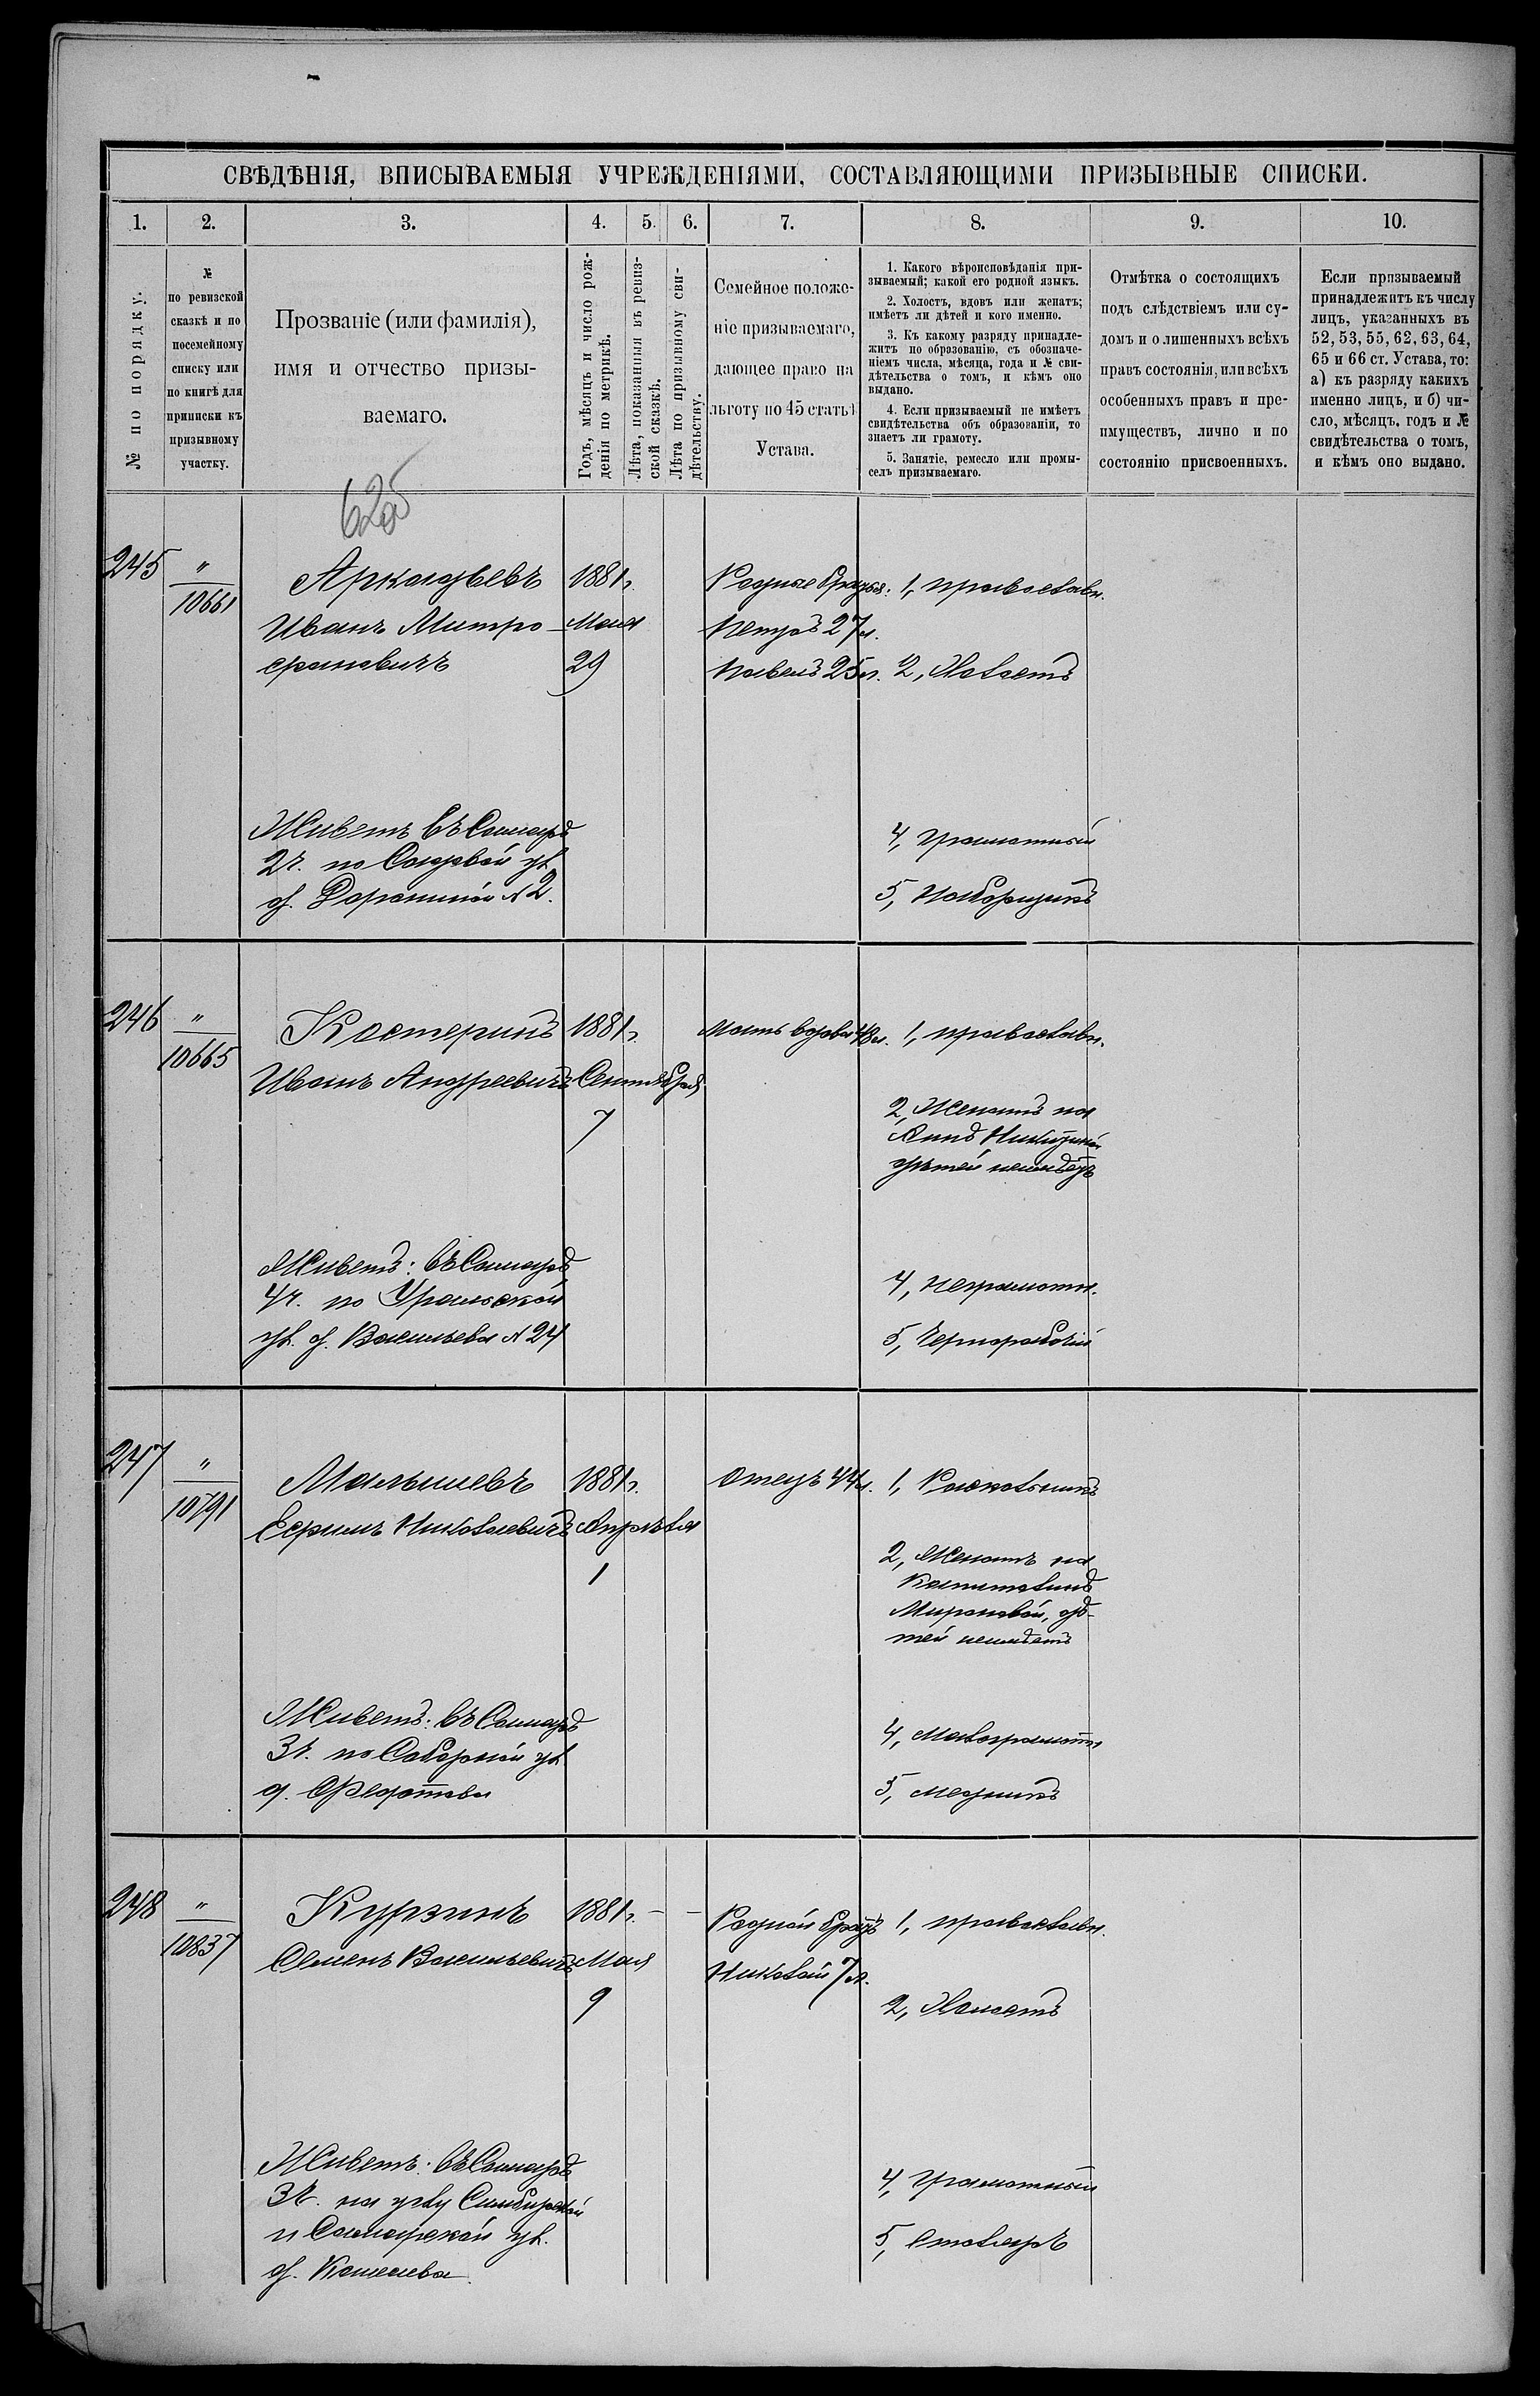 СВѢДѢНІЯ, ВПИСЫВАЕМЫЯ УЧРЕЖДЕНІЯМИ, СОСТАВЛЯЮЩИМИ ПРИЗЫВНЫЕ СПИСКИ.
1. 2. 3. 4. 5. 6. 7. 8. 9. 10.
№ по порядку.
№
по ревизской
сказкѣ и по
посемейному
списку или
по книгѣ для
приписки къ
призывному
участку.
Прозваніе (или фамилія),
имя и отчество призы-
ваемаго.
Годъ, мѣсяцъ и число рож-
денія по метрикѣ.
Лѣта, показанныя въ ревиз-
ской сказкѣ.
Лѣта по призывному сви-
дѣтельству.
Семейное положе-
ніе призываемаго,
дающее право на
льготу по 45 статьѣ
Устава.
1. Какого вѣроисповѣданія при-
зываемый; какой его родной языкъ.
2. Холостъ, вдовъ или женатъ;
имѣетъ ли дѣтей и кого именно.
3. Къ какому разряду принадле-
житъ по образованію, съ обозначе-
ніемъ числа, мѣсяца, года и № сви-
дѣтельства о томъ, и кѣмъ оно
выдано.
4. Если призываемый не имѣетъ
свидѣтельства объ образованіи, то
знаетъ ли грамоту.
5. Занятіе, ремесло или промы-
селъ призываемаго.
Отмѣтка о состоящихъ
подъ слѣдствіемъ или су-
домъ и о лишенныхъ всѣхъ
правъ состоянія, или всѣхъ
особенныхъ правъ и пре-
имуществъ, лично и по
состоянію присвоенныхъ.
Если призываемый
принадлежитъ къ числу
лицъ, указанныхъ въ
52, 53, 55, 62, 63, 64,
65 и 66 ст. Устава, то:
а) къ разряду какихъ
именно лицъ, и б) чи-
сло, мѣсяцъ, годъ и №
свидѣтельства о томъ,
и кѣмъ оно выдано.
625
245
"
10661
Аркадьевъ
Иванъ Митро-
фановичъ
1881 г.
Мая
29
Родные братья:
Петръ 27 л.
Павелъ 25 л.
1, православн.
2, Холостъ
Живетъ въ Самарѣ
2 ч. по Садовой ул.
д. Дорониной № 2.
4, Грамотный
5, Наборщикъ
246
"
10665
Костеринъ
Иванъ Андреевичъ
1881 г.
Сентября
7
Мать вдова 48 л.
1, православн.
2, Женатъ на
Аннѣ Никитиной
дѣтей неимѣетъ
Живетъ: въ Самарѣ
4 ч. по Уральской
ул. д. Васильева № 24
4, Неграмотн.
5, Чернорабочій
247
"
10791
Малышевъ
Ефимъ Николаевичъ
1881 г.
Апрѣля
1
Отецъ 44 л.
1, Раскольникъ
2, Женатъ на
Капитолинѣ
Мироновой, дѣ-
тей неимѣетъ
Живетъ: въ Самарѣ
3 ч. по Соборной ул.
д. Федотова
4, Малограмотн
5, Медникъ
248
"
10837
Курзинъ
Семенъ Васильевичъ
1881 г. — —
Мая
9
Родной братъ
Николай 7 л.
1, православн.
2, Холостъ
Живетъ: въ Самарѣ
3 ч. на углу Симбирской
и Самарской ул.
д.
4, Грамотный
5, Столяръ